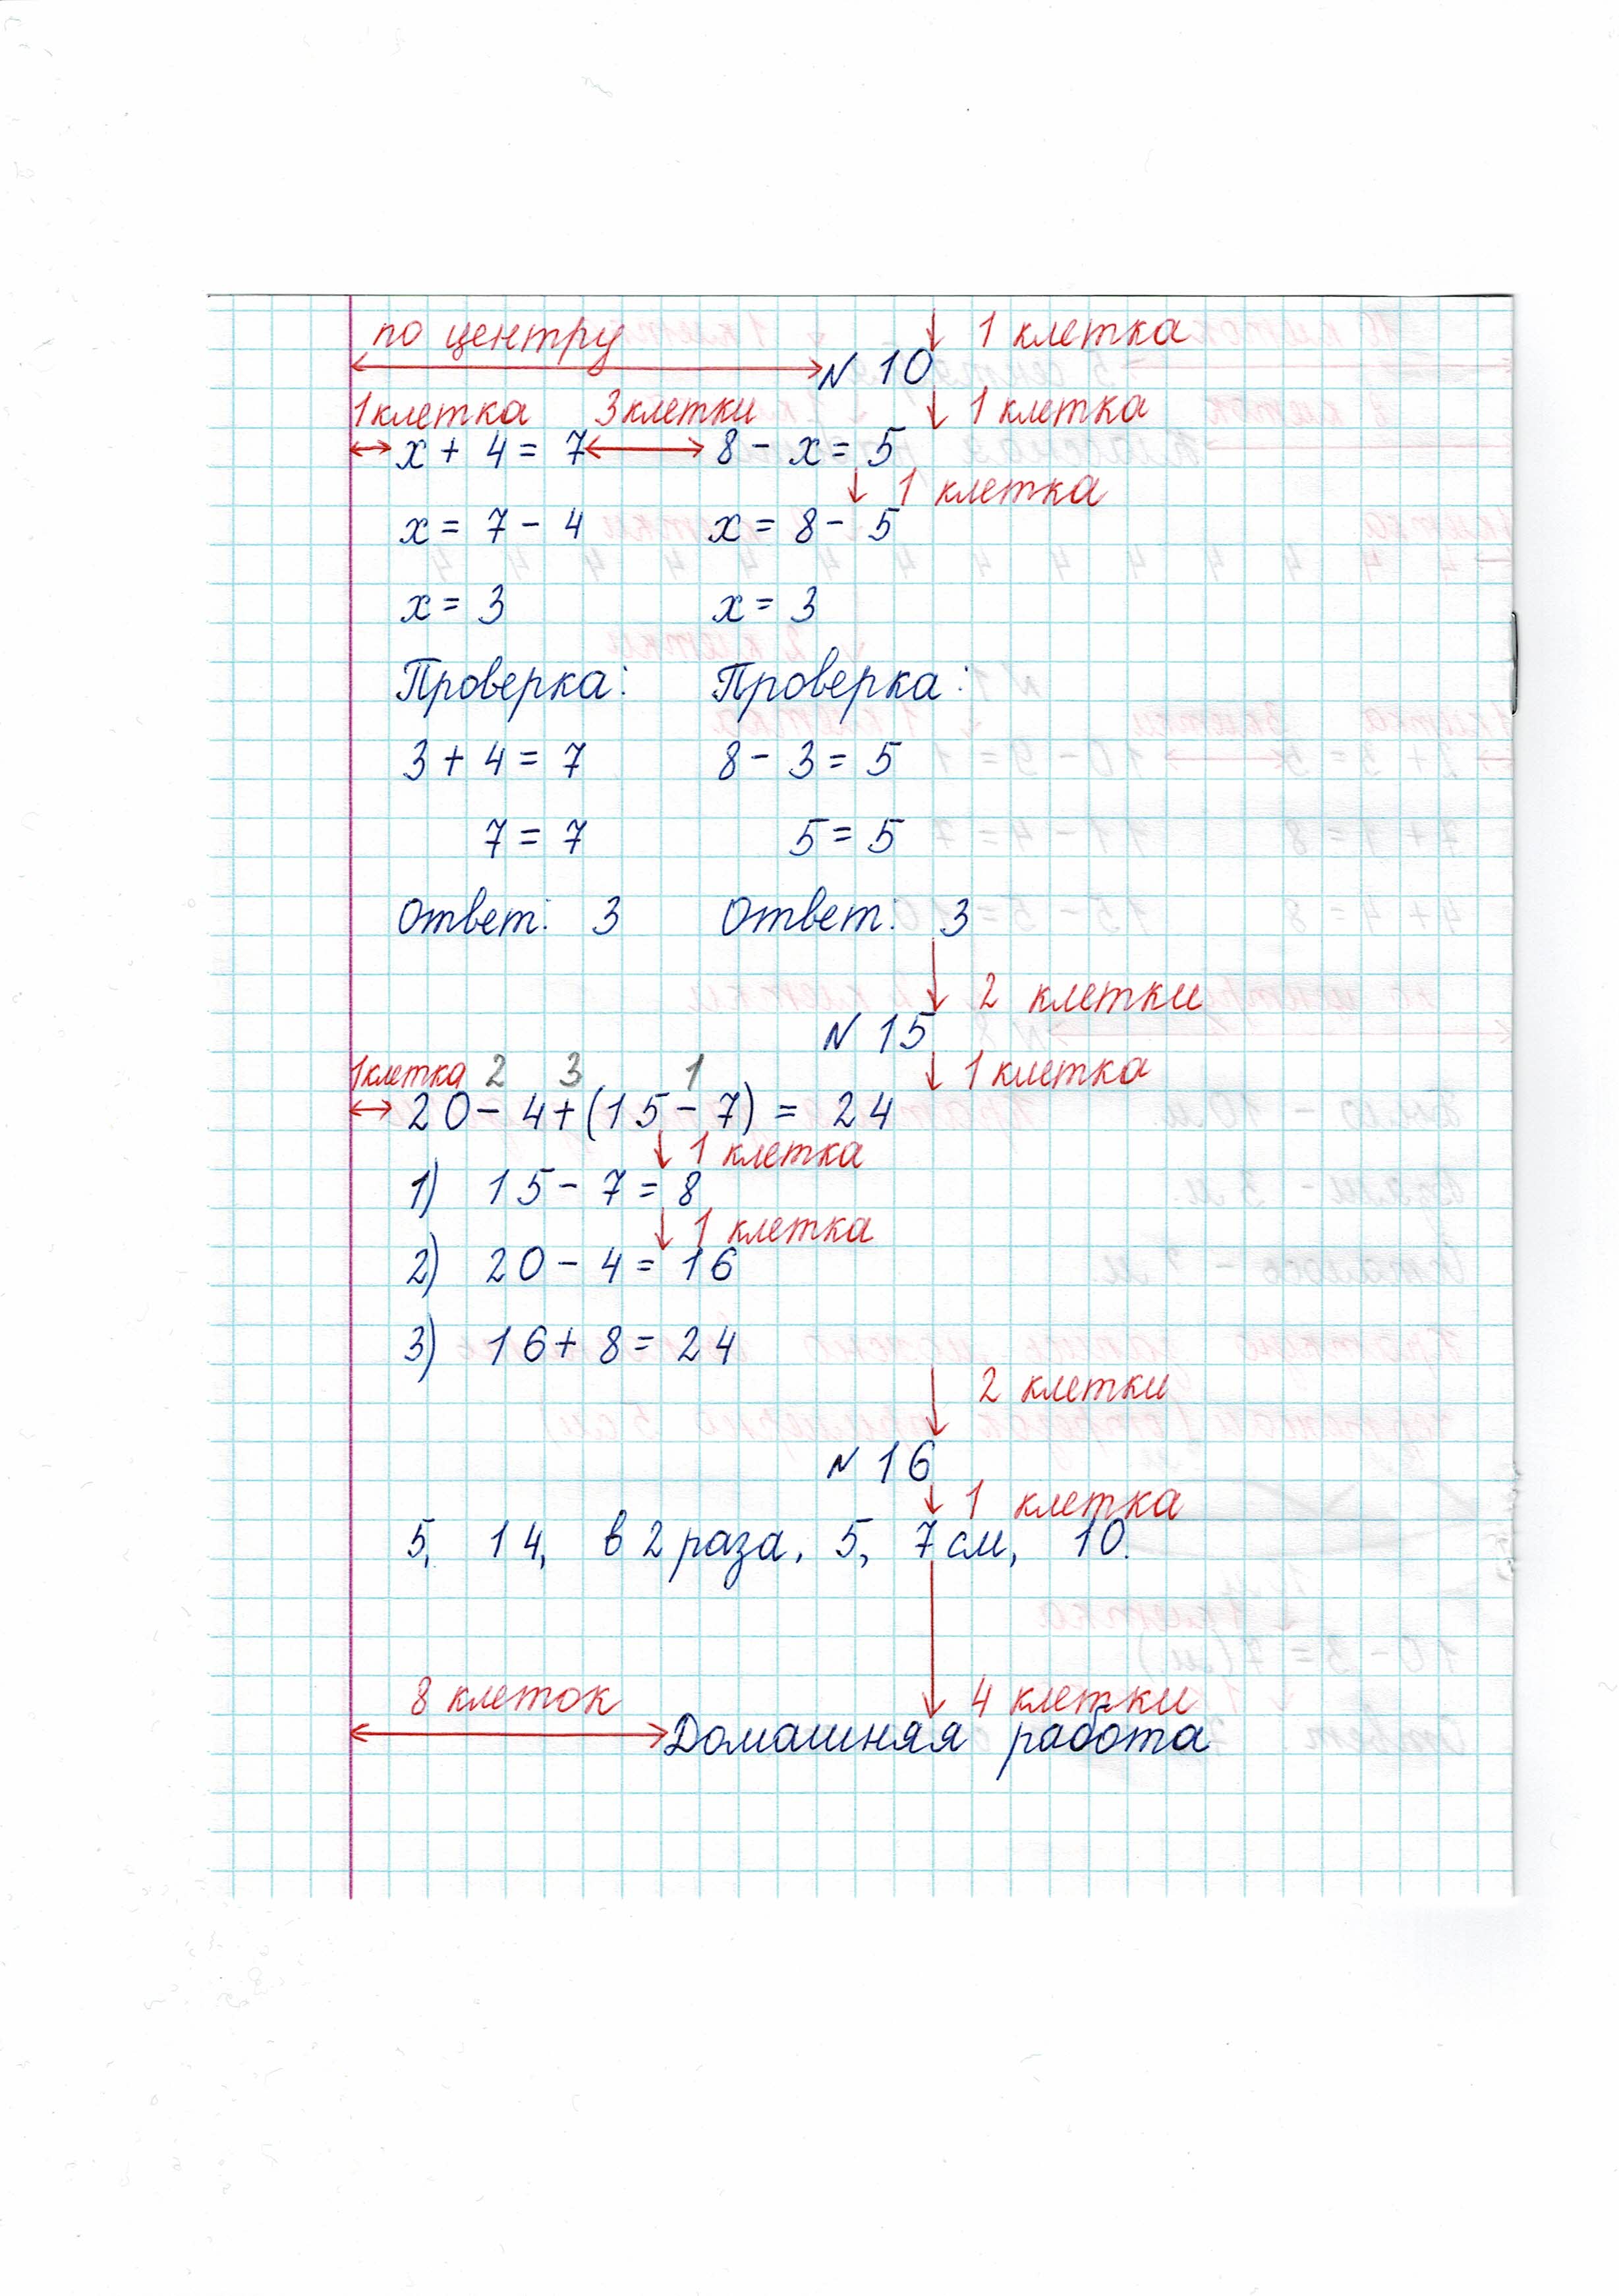 по центру 1 клетка
N 10
1клетка 3клетки 1 клетка
x + 4 = 7 8 - x = 5
1 клетка
x = 7 - 4 x = 8 - 5
x = 3 x = 3
Проверка: Проверка:
3 + 4 = 7 8 - 3 = 5
7 = 7 5 = 5
Ответ: 3 Ответ: 3
2 клетки
N 15
1клетка 2 3 1 1 клетка
20 - 4 + (15 - 7) = 24
1 клетка
1) 15 - 7 = 8
1 клетка
2) 20 - 4 = 16
3) 16 + 8 = 24
2 клетки
N 16
1 клетка
5, 14, в 2 раза, 5, 7 см, 10.
8 клеток 4 клетки
Домашняя работа